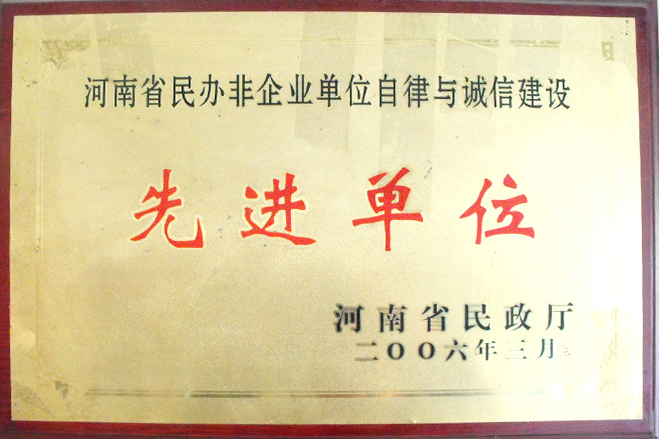 河南省民办非企业单位自律与诚信建设
先进单位
河南省民政厅
二〇〇六年三月